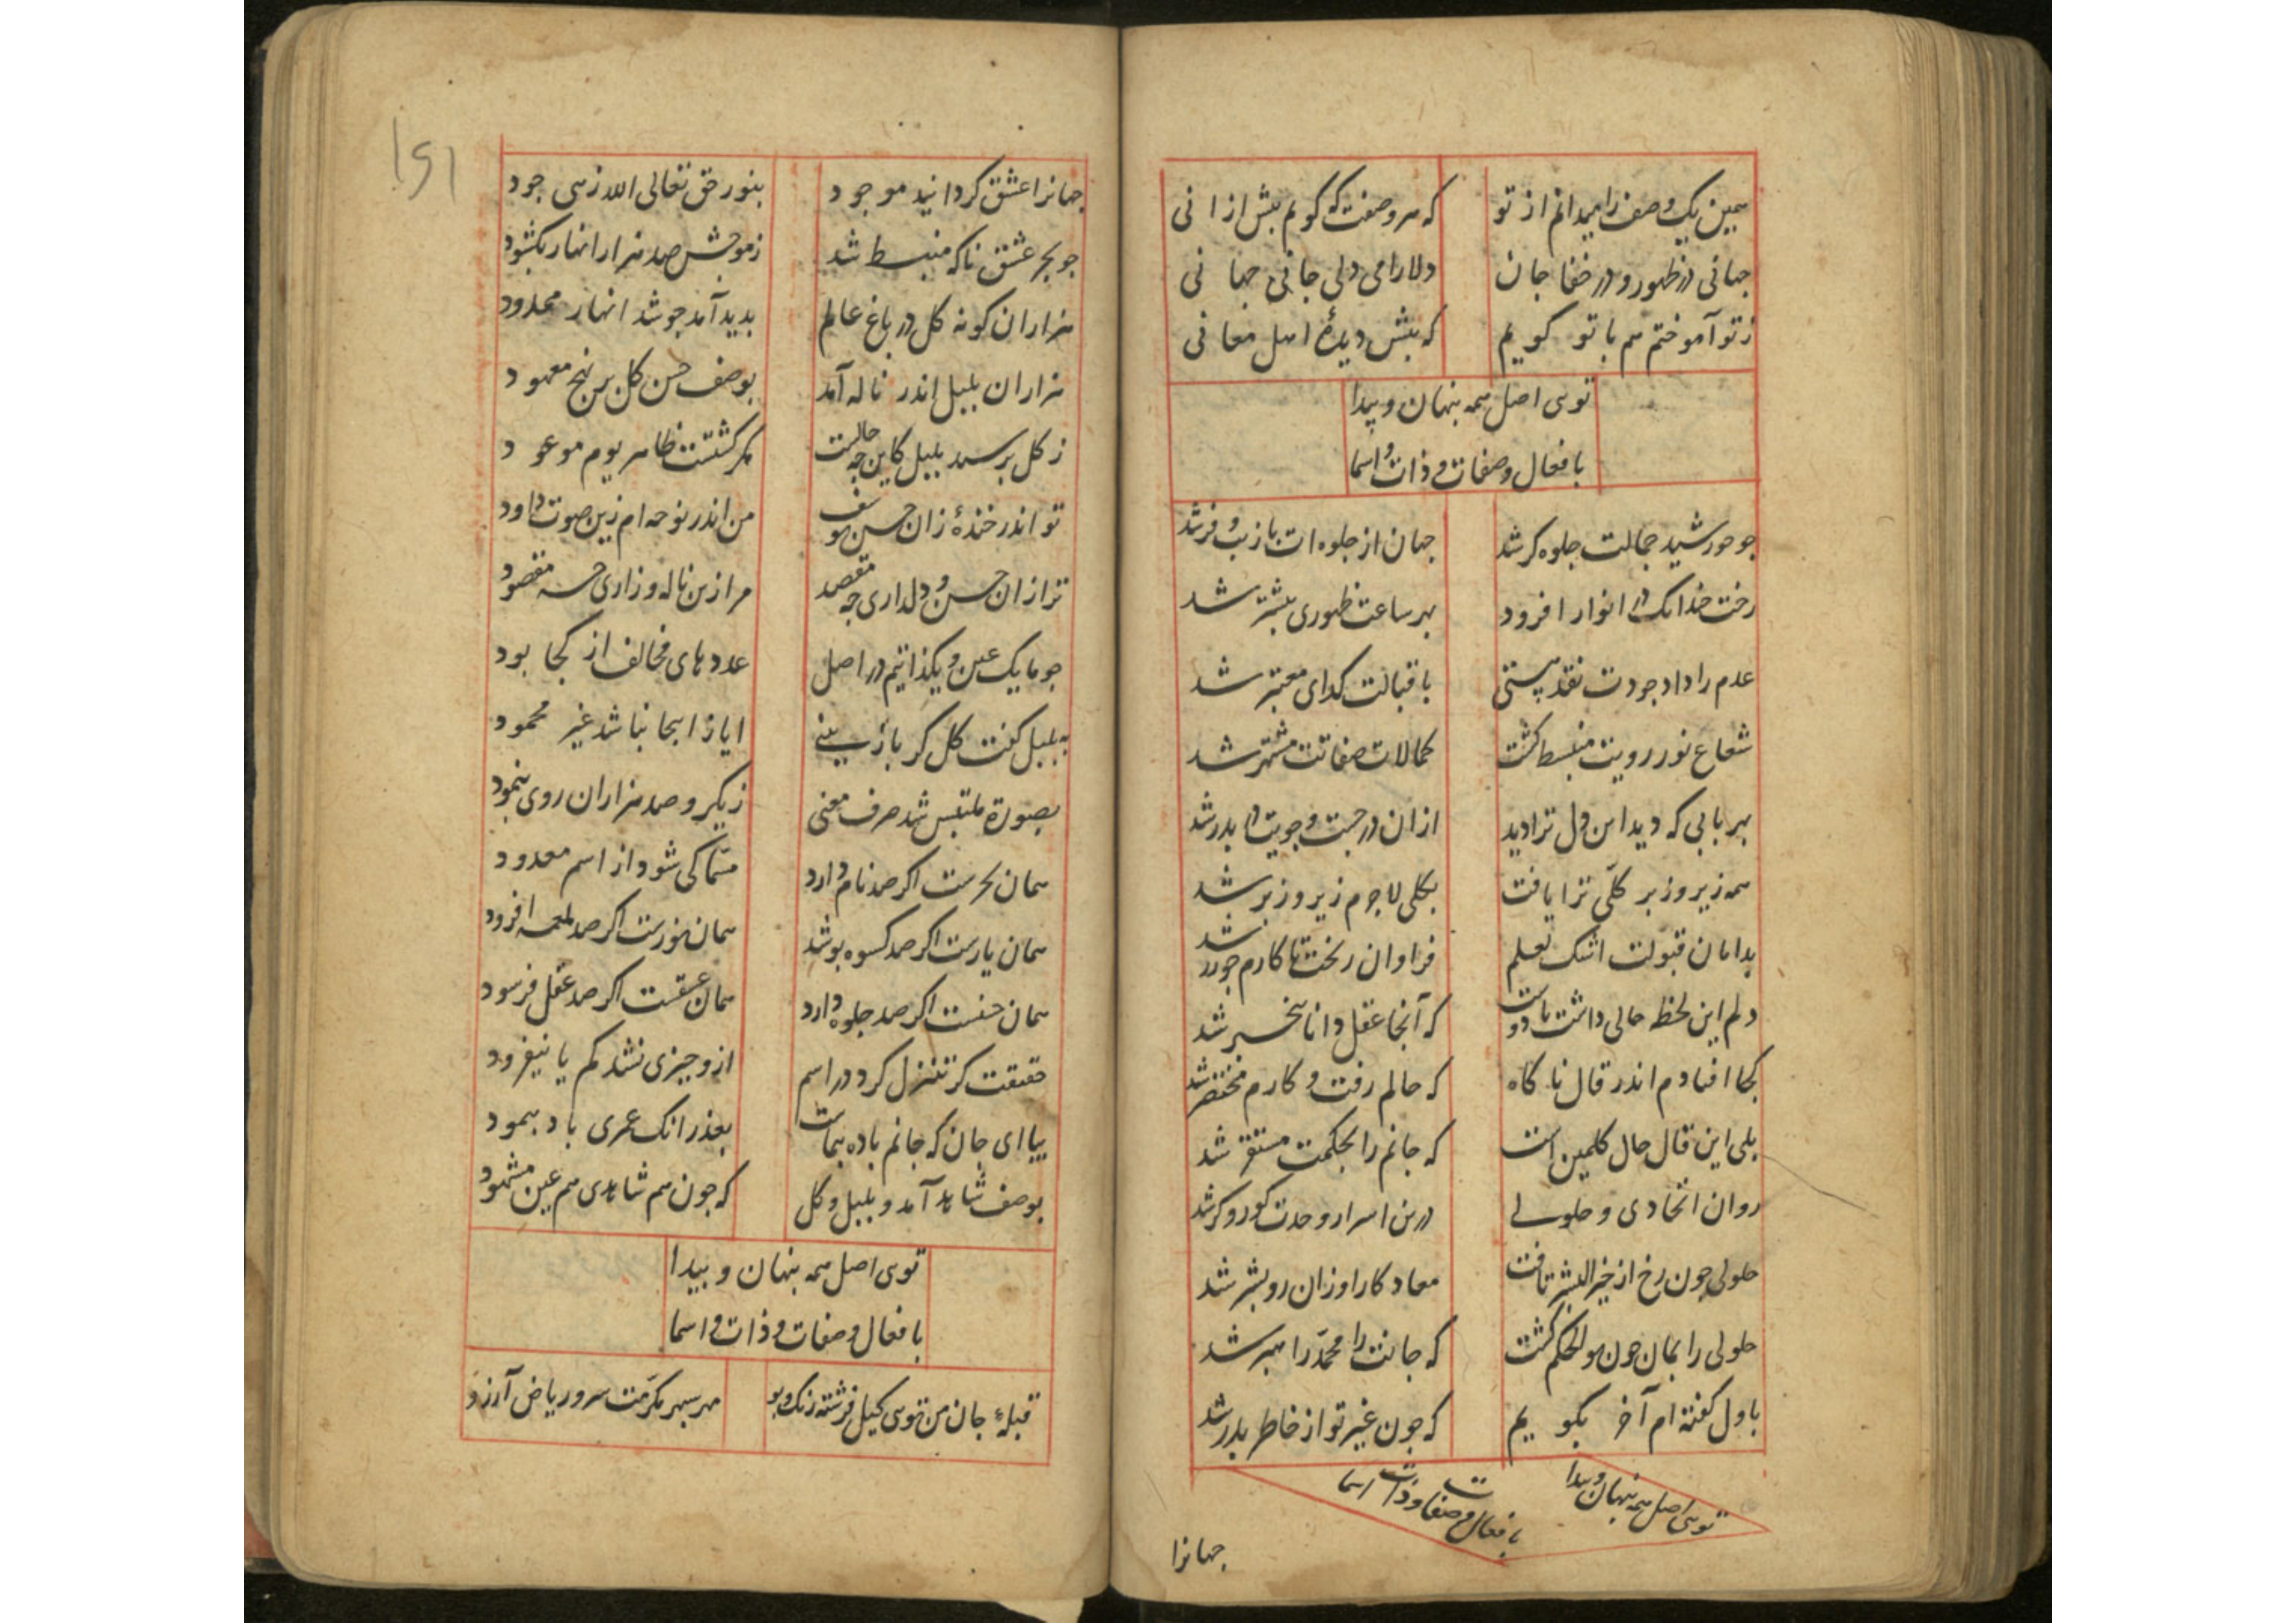 همین یک وصف را میدانم از تو که هر وصفت که گویم بیش از انی
جهانی در ظهور و در خفا جان دلارامی دلی جانی جهانی
ز تو آموختم هم با تو گویم که بیش دیدهٔ اهل معانی
توی اصل همه پنهان و پیدا
بافعال و صفات و ذات و اسما
جو خورشید جمالت جلوه کر شد جهان از جلوه ات با زیب و فر شد
رخت چندانک در انوار افزود بهر ساعت ظهوری بیشتر شد
عدم را داد جودت نقد هستی باقبالت کدای معتبر شد
شعاع نور رویت منبسط کشت کمالات صفاتت مشتهر شد
بهر بابی که دید این دل ترا دید ازان در جست و جویت در بدر شد
همه زیر و زبر کلّی ترا یافت بکلی لاجرم زیر و زبر شد
بدامان قبولت اشک لعلم فراوان ریخت تا کارم جو زر شد
دلم این لحظ حالی داشت با دوست که آنجا عقل دانا بیخبر شد
کجا افتادم اندر قال ناکاه که حالم رفت و کارم مختصر شد
بلی این قال حال کلمین است که جانم را بحکمت مستقر شد
روان اتحادی و حلولی درین اسرار وحدت کور و کر شد
حلولی جون رخ از خیر البشر تافت معاد کار او زان رو بشر شد
حلولی را بمان جون بوالحکم کشت که جانت را محمّد راهبر شد
باول کفته ام آخر بگویم که جون غیر تو از خاطر بدر شد
توی اصل همه پنهان و پیدا
بافعال و صفات و ذات و اسما
جهانرا
۱۵۱
جهانرا عشق کردانید موجود بنور حق تعالی الله زهی جود
جو بحر عشق ناکه منبسط شد ز موجش صد هزار انهار بکشود
هزاران کونه کل در باغ عالم بدید آمد جو شد انهار محدود
هزاران بلبل اندر ناله آمد بوصف حسن کل بر نهج معهود
ز کل پرسید بلبل کاین جه حالست مکر کشتست ظاهر یوم موعود
تو اندر خندهٔ زان حسن یوسف من اندر نوحه ام زین صوت داود
ترا زان حسن و دلداری جه مقصد مرا زین ناله و زاری جه مقصود
جو ما یک عین و یکذاتیم در اصل عددهای مخالف از کجا بود
به بلبل کفت کل کر باز بینی ایاز اینجا نباشد غیر محمود
بصورة ملتبس شد حرف معنی ز یکرو صد هزاران روی بنمود
همان بحرست اکر صد نام دارد مسمّا کی شود از اسم معدود
همان یارست اکر صد کسوه پوشد همان نورست اکر صد لمعه افزود
همان حسنست اکر صد جلوه دارد همان عشقست اکر صد عقل فرسود
حقیقت کر تنزل کرد در اسم ازو جیزی نشد کم یا نیفزود
بیا ای جان که جانم باده پیماست بعذر انک عمری باد پیمود
بوصف شاهد آمد و بلبل و کل که جون هم شاهدی هم عین مشهود
توی اصل همه پنهان و پیدا
بافعال و صفات و ذات و اسما
قبلهٔ جان من توی کیل فرشته رنک و بو مهر سپهر مکرمت سرو ریاض آرزو